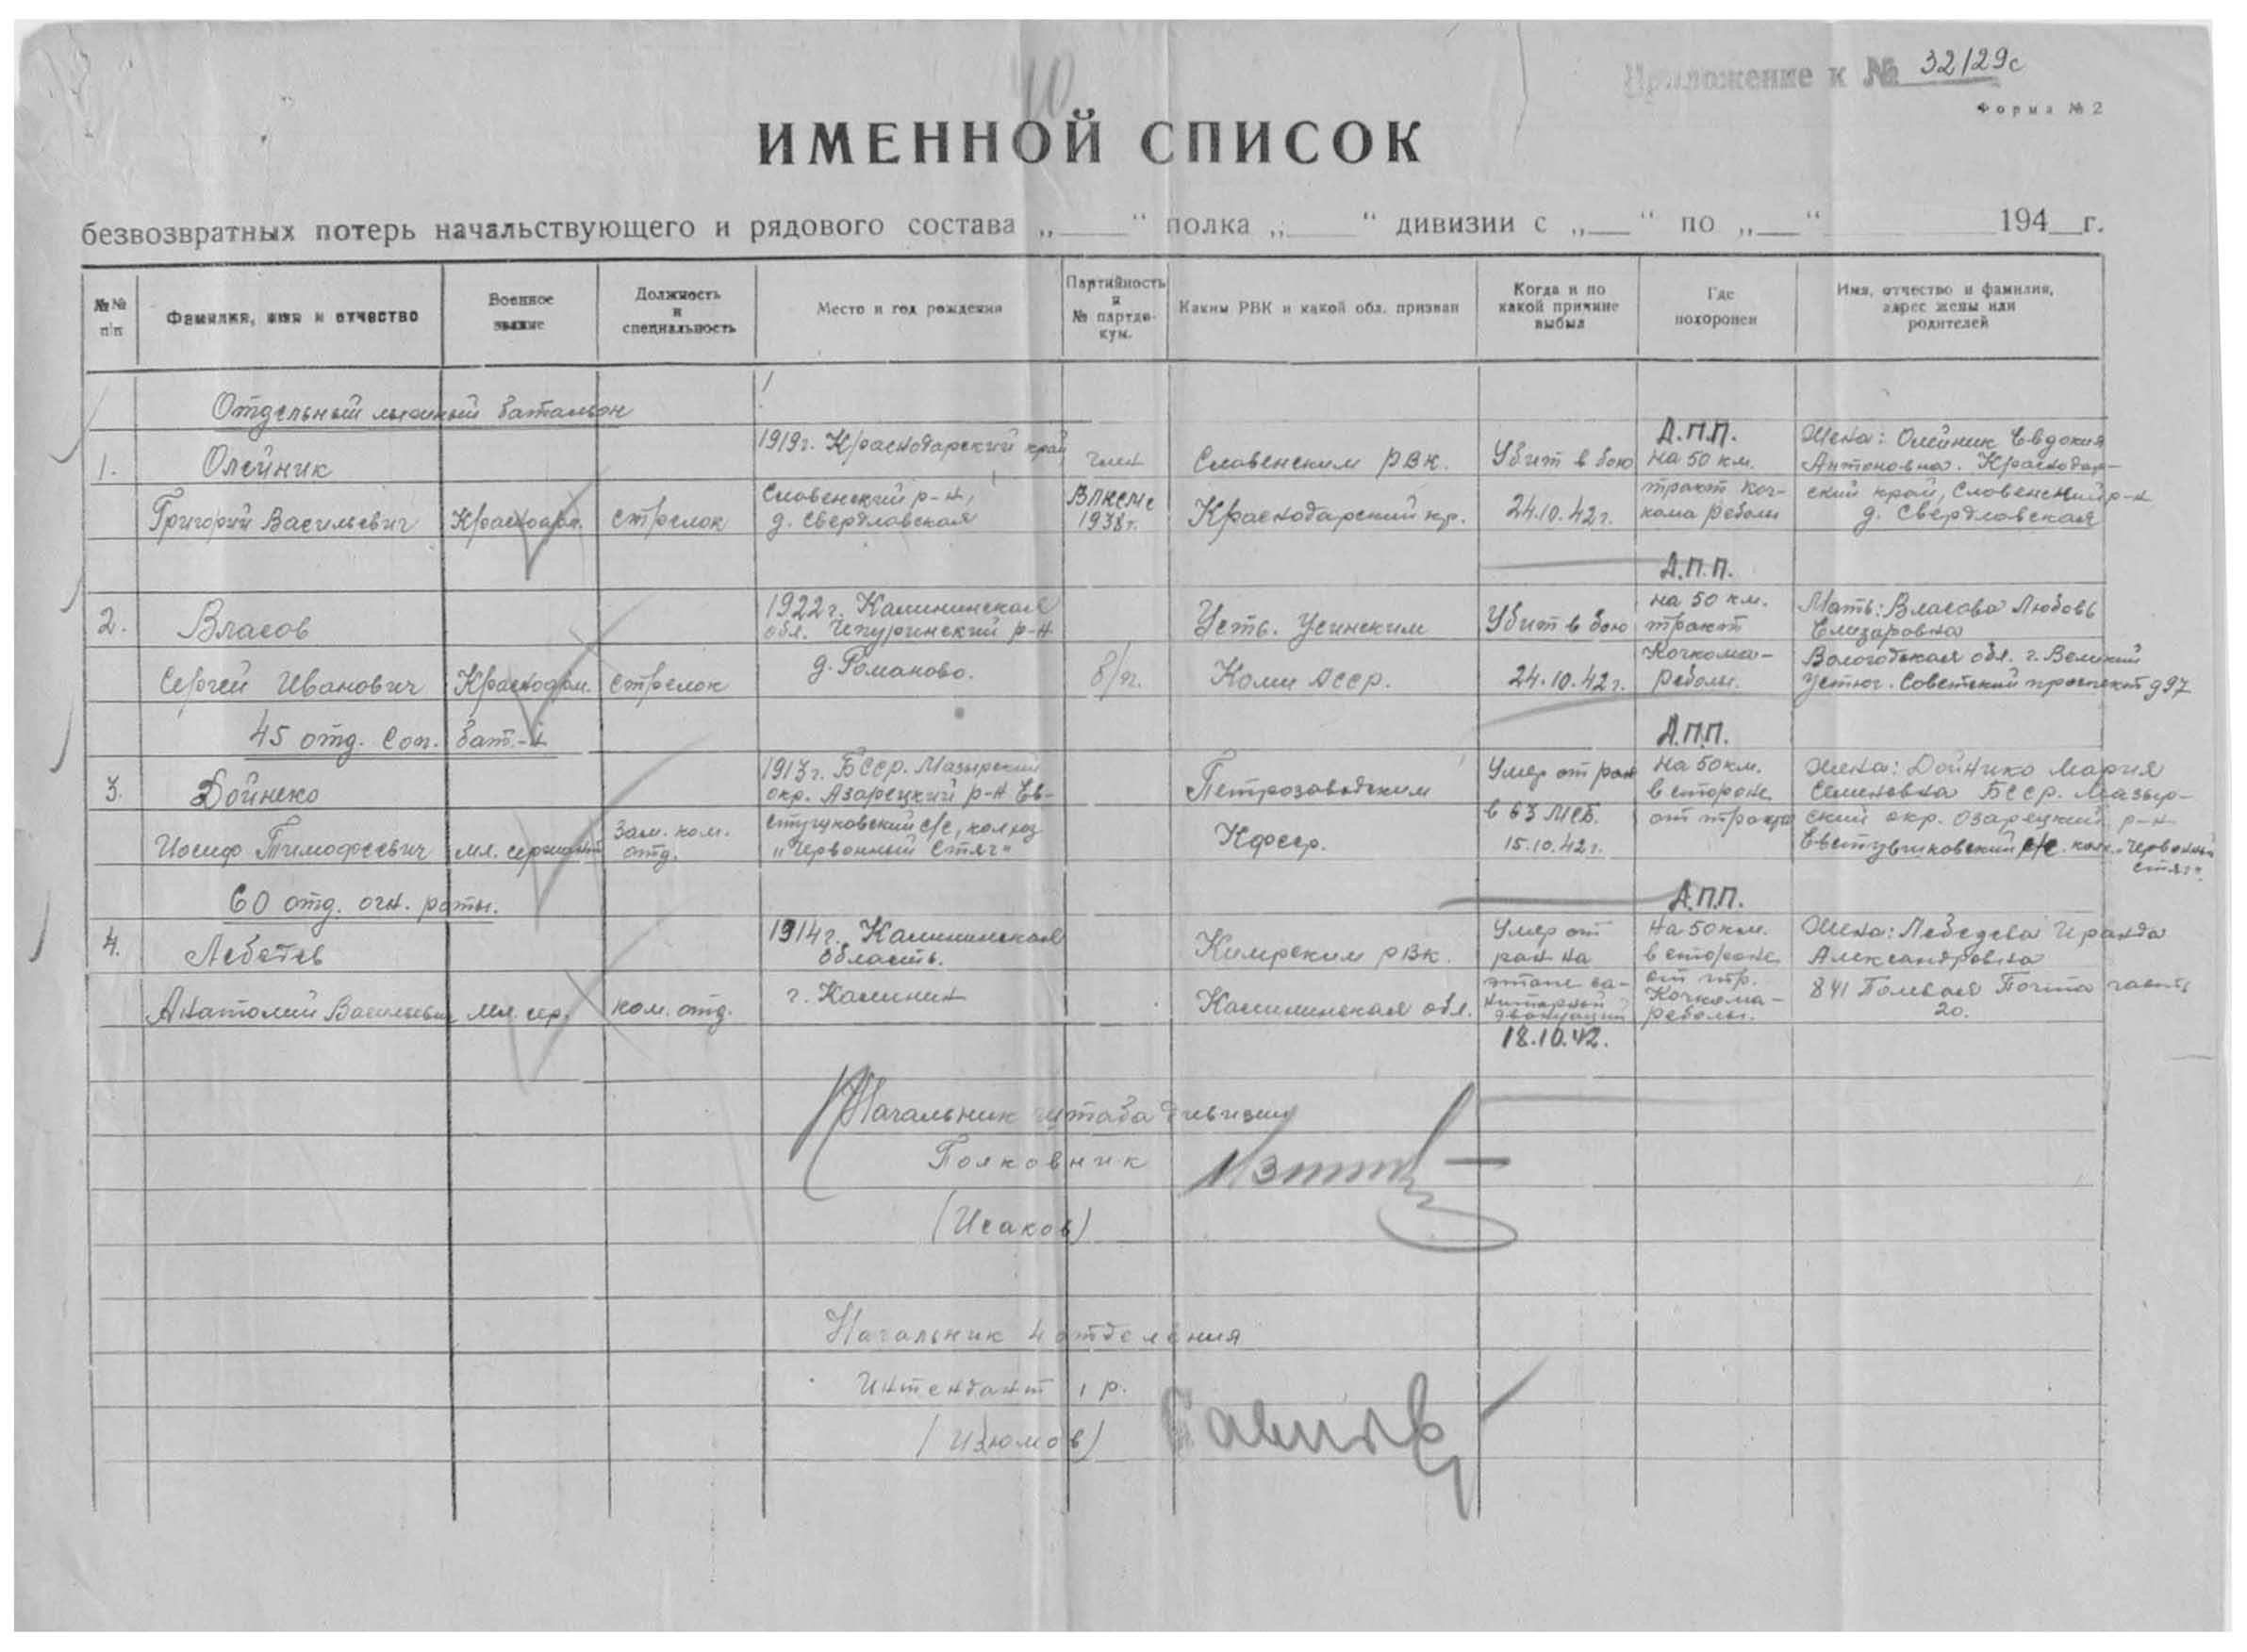 Приложение к № 32129с
Форма № 2
ИМЕННОЙ СПИСОК
безвозвратных потерь начальствующего и рядового состава „ “ полка „ “ дивизии с „ “ по „ “ 194 г.
№№ п/п
Фамилия, имя и отчество
Военное звание
Должность и специальность
Место и год рождения
Партийность и № партдокум.
Каким РВК и какой обл. призван
Когда и по какой причине выбыл
Где похоронен
Имя, отчество и фамилия, адрес жены или родителей
Отдельный лыжный батальон
1. Олейник
Григорий Васильевич
Красноарм.
стрелок
1919г. Краснодарский край
Славенский р-н,
д. Свердловская
член
ВЛКСМ с
1938г.
Славенским РВК.
Краснодарский кр.
Убит в бою
24.10.42г.
Д.П.П.
на 50 км.
тракт Коч-
кома Реболы
Жена: Олейник Евдокия
Антоновна. Краснодар-
ский край, Славенский р-н
д. Свердловская
2. Власов
Сергей Иванович
Красноарм.
стрелок
1922г. Калининская
обл. р-н
д. Романово.
б/п.
Усть. Усинским
Коми АССР.
Убит в бою
24.10.42г.
Д.П.П.
на 50 км.
тракт
Кочкома-
Реболы.
Мать: Власова Любовь
Елизаровна
Вологодская обл. г. Великий
Устюг. Советский проспект д 97
45 отд. сап. бат-н
3. Дойнеко
Иосиф Тимофеевич
мл. сержант
Зам. ком.
отд.
1913г. БССР. Мазырский
окр. Азарецкий р-н Ев-
с/с, колхоз
"Червонный Стяг"
Петрозаводским
Кфсср.
Умер от ран
в 63 МСБ.
15.10.42г.
Д.П.П.
на 50км.
в стороне
от тракта
Жена: Дойнико Мария
Семеновна БССР. Мазыр-
ский окр. Озарецкий р-н
с/с. колх. "Червонный
стяг".
60 отд. огн. роты.
4. Лебедев
Анатолий Васильевич
мл. сер.
ком. отд.
1914г. Калининская
область.
г. Калинин
Кимрским РВК.
Калининская обл.
Умер от
ран на
этапе са-
нитарной
эвакуации
18.10.42.
Д.П.П.
на 50км.
в стороне
от тр.
Кочкома-
Реболы.
Жена: Лебедева Ираида
Александровна
841 Полевая Почта часть
20.
Начальник штаба дивизии
Полковник
(Исаков)
Начальник 4 отделения
Интендант 1 р.
(Изюмов)